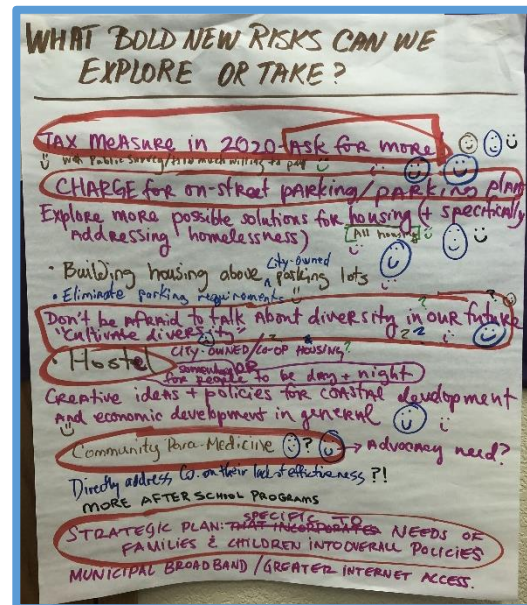 WHAT BOLD NEW RISKS CAN WE
EXPLORE OR TAKE?
TAX MEASURE in 2020-ASK for more
with Public Survey/How much willing to pay
CHARGE for on-street parking/parking plan
Explore more possible solutions for housing (+ specifically
All housing
Addressing homelessness)
• Building housing above City-owned parking lots
• Eliminate parking requirements
Don't be AFRAID to talk About diversity in our future
"Cultivate diversity"
• Hostel CITY-OWNED/CO-OP HOUSING?
somewhere OR
for people to be day + night
Creative ideas + policies for coastal development
And economic development in general
Community Para-Medicine ? → Advocacy need?
Directly address Co. on their lack of effectiveness ?!
MORE AFTER SCHOOL PROGRAMS
STRATEGIC PLAN: THAT INCORPORATES SPECIFIC TO NEEDS OF
FAMILIES & CHILDREN INTO OVERALL POLICIES
MUNICIPAL BROADBAND/GREATER INTERNET ACCESS.